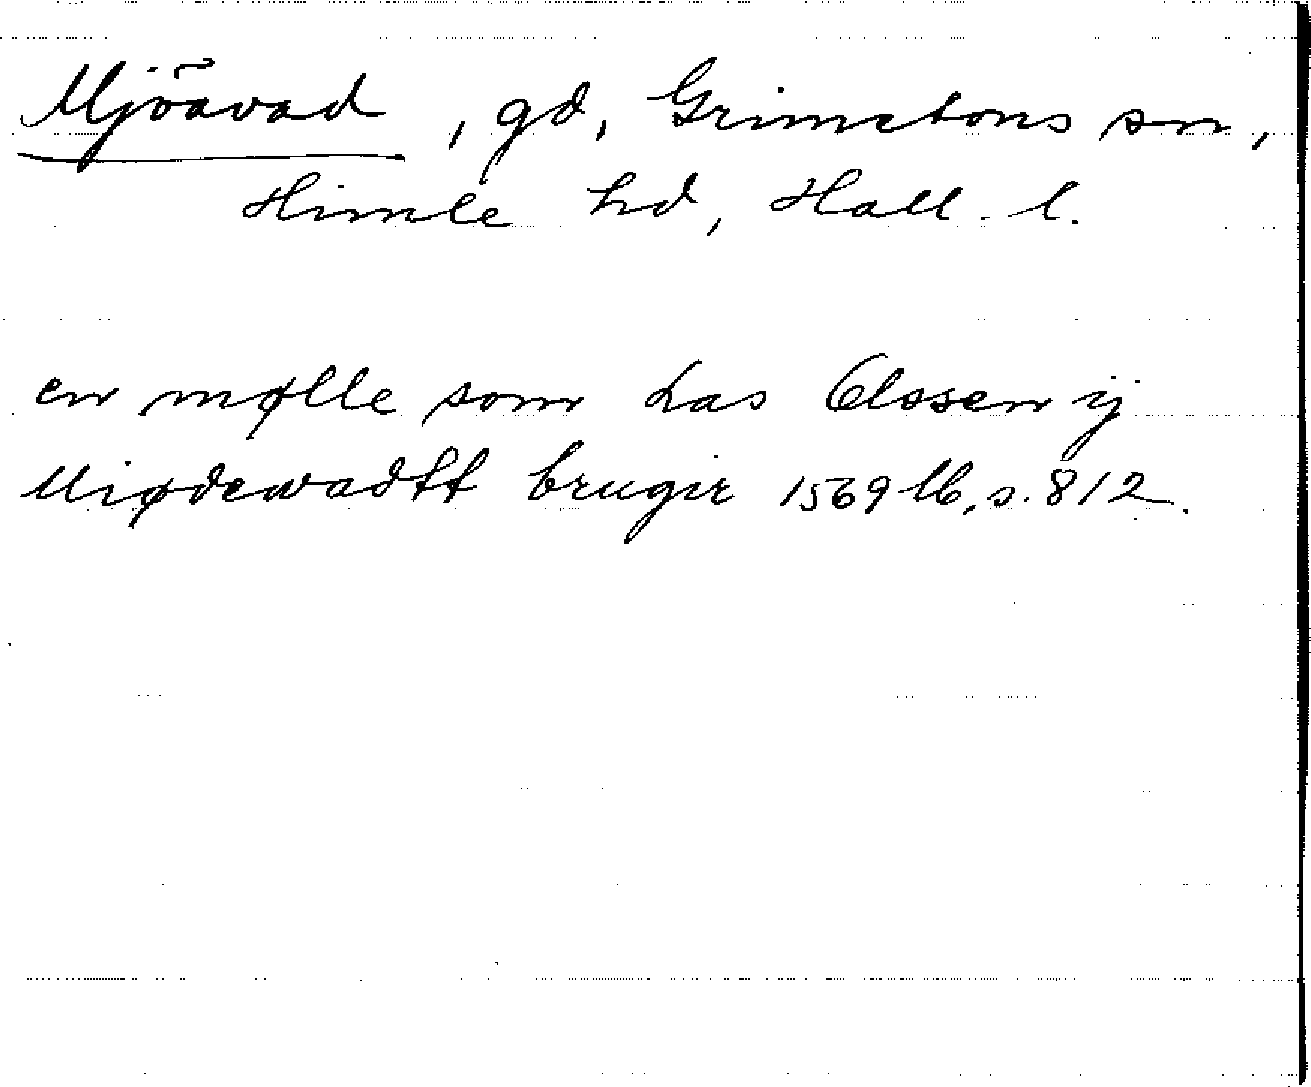 Mjöavad, gd, Grimetons sn,
Himle hd, Hall. l.
en mølle som Las Olssen ij
Miødewadtt bruger 1569 lb, s. 812.